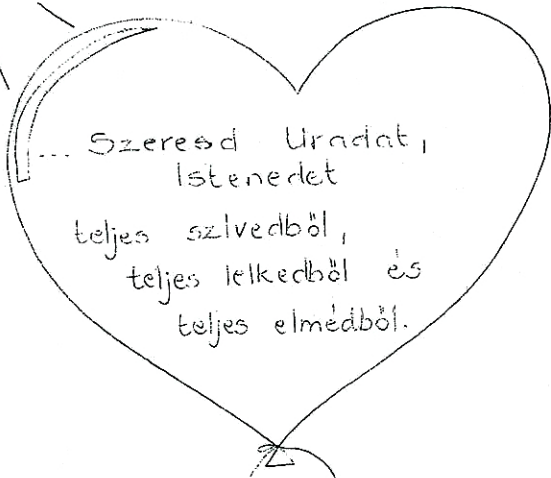 ... Szeresd Uradat,
Istenedet
teljes szívedből,
teljes lelkedből és
teljes elmédből.